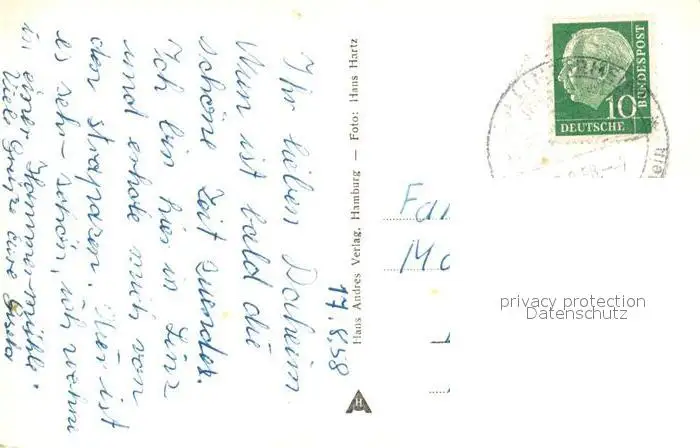 17.8.58
Ihr lieben Daheim.
Nun ist bald die
schöne Zeit zuende.
Ich bin hier in Linz
und erhole mich von
den strapazen. Hier ist
es sehr schön, ich wohne
in einer "Hammermühle".
Viele Grüße eure Gisela
Hans Andres Verlag, Hamburg — Foto: Hans Hartz
H
Fa
Mo
10
DEUTSCHE
BUNDESPOST
privacy protection
Datenschutz